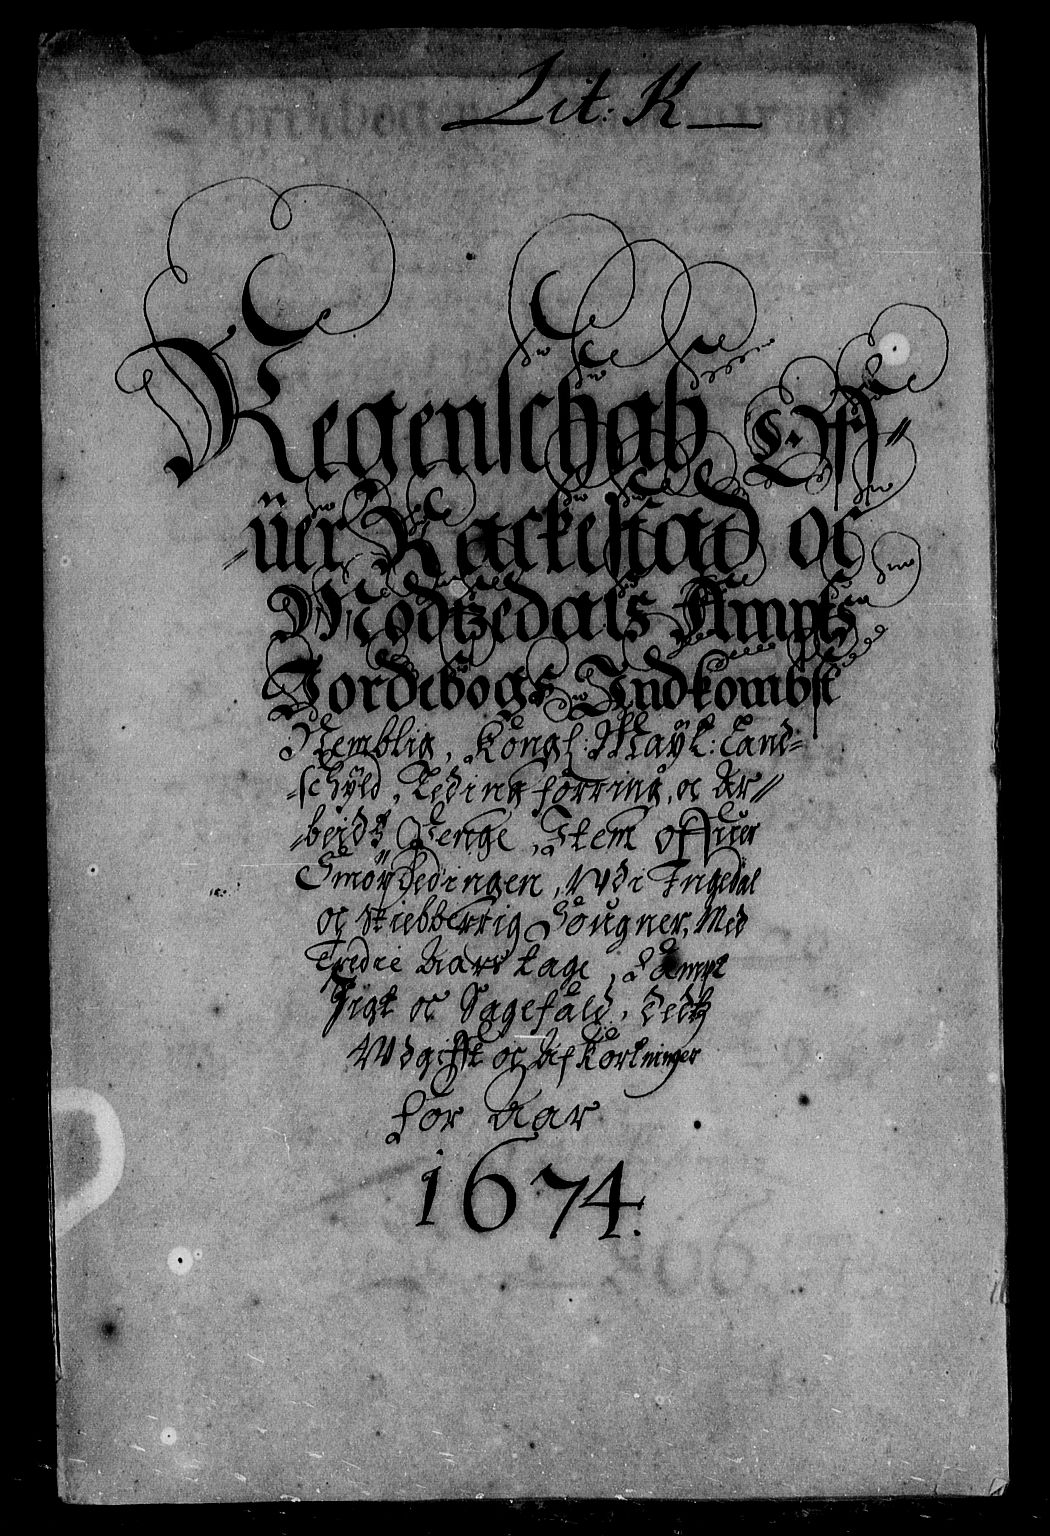 Lit: K
Regenschab Off=
=üer Rackestad oc
Modtzedals Ampts
Jordebogs Indkombst
Nemblig, Kongl: Maÿt: Land=
=schÿld, Leding foring, oc Ar=
=beidtz Penge, Item offuer
Smörledingen, Vdi Ingedal
oc Skiebberrig Sougner, Med
Tredie Aars tage, Sampt
Sigt oc Sagefald, dedtz
Vdgifft oc Afkortninger
for Aar
1674.